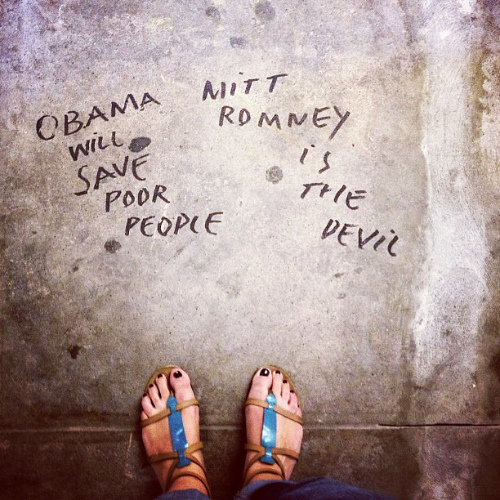 OBAMA
WILL
SAVE
POOR
PEOPLE
MITT
ROMNEY
iS
THE
DEViL